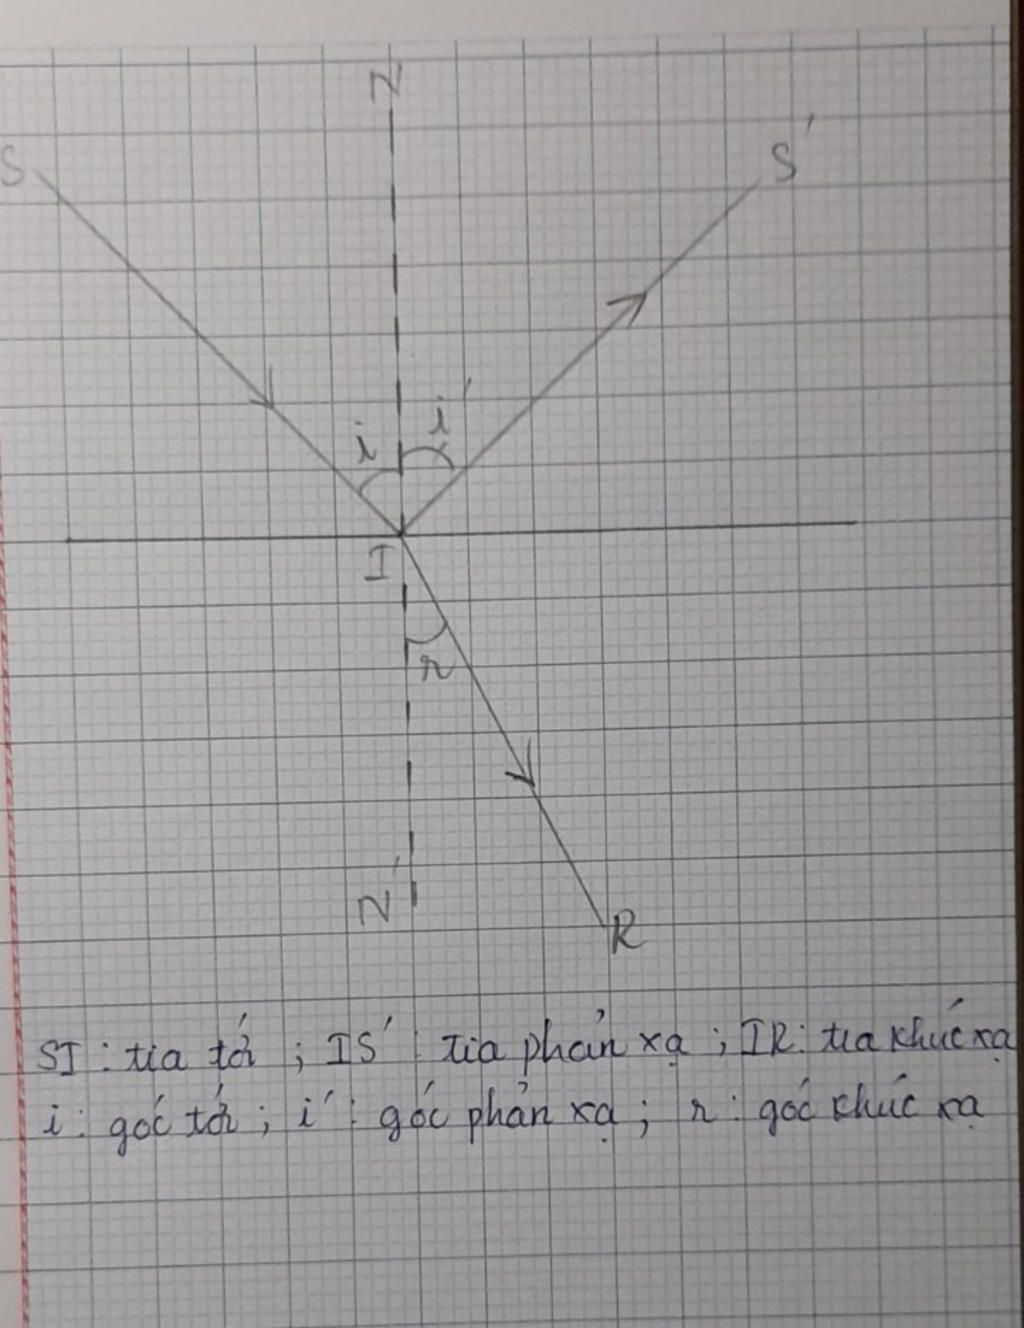 N
S
S'
i
i'
I
r
N'
R
SI : tia tới ; IS' : tia phản xạ ; IR : tia khúc xạ
i : góc tới ; i' : góc phản xạ ; r : góc khúc xạ